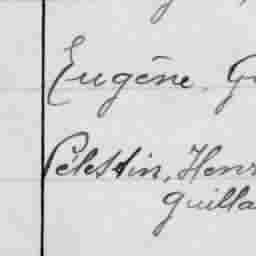 Eugène, Gu
Célestin, Henr
Guilla